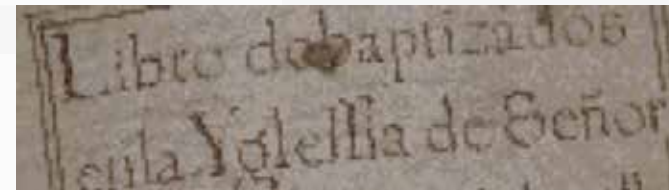 Libro de baptizados
enla Yglessia de Señor